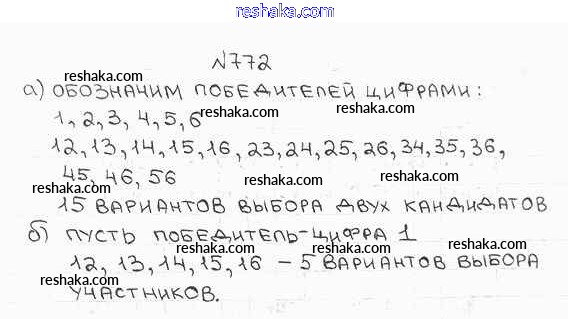 reshaka.com
№772
reshaka.com reshaka.com
а) ОБОЗНАЧИМ ПОБЕДИТЕЛЕЙ ЦИФРАМИ:
reshaka.com reshaka.com
1, 2, 3, 4, 5, 6
reshaka.com
12, 13, 14, 15, 16, 23, 24, 25, 26, 34, 35, 36,
reshaka.com reshaka.com
45, 46, 56
reshaka.com reshaka.com
15 ВАРИАНТОВ ВЫБОРА ДВУХ КАНДИДАТОВ
reshaka.com reshaka.com
б) ПУСТЬ ПОБЕДИТЕЛЬ-ЦИФРА 1
reshaka.com reshaka.com
12, 13, 14, 15, 16 – 5 ВАРИАНТОВ ВЫБОРА
reshaka.com reshaka.com
УЧАСТНИКОВ.
reshaka.com